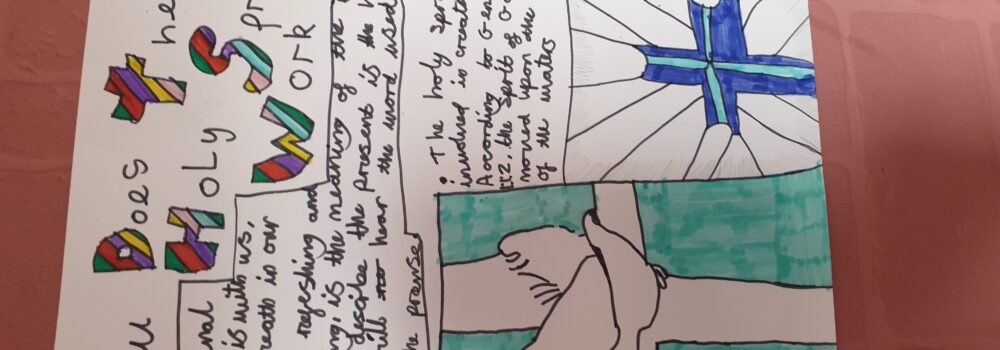 Does the
Holy Sp
Work
is with us,
reath is our
regeshing and
ng, is the meaning of the
describe the present is the
hear the word used
the prense.
• The holy Spri
involved is create
According to Gen
1:2, the Sprit of Go
moved upon the
of the waters